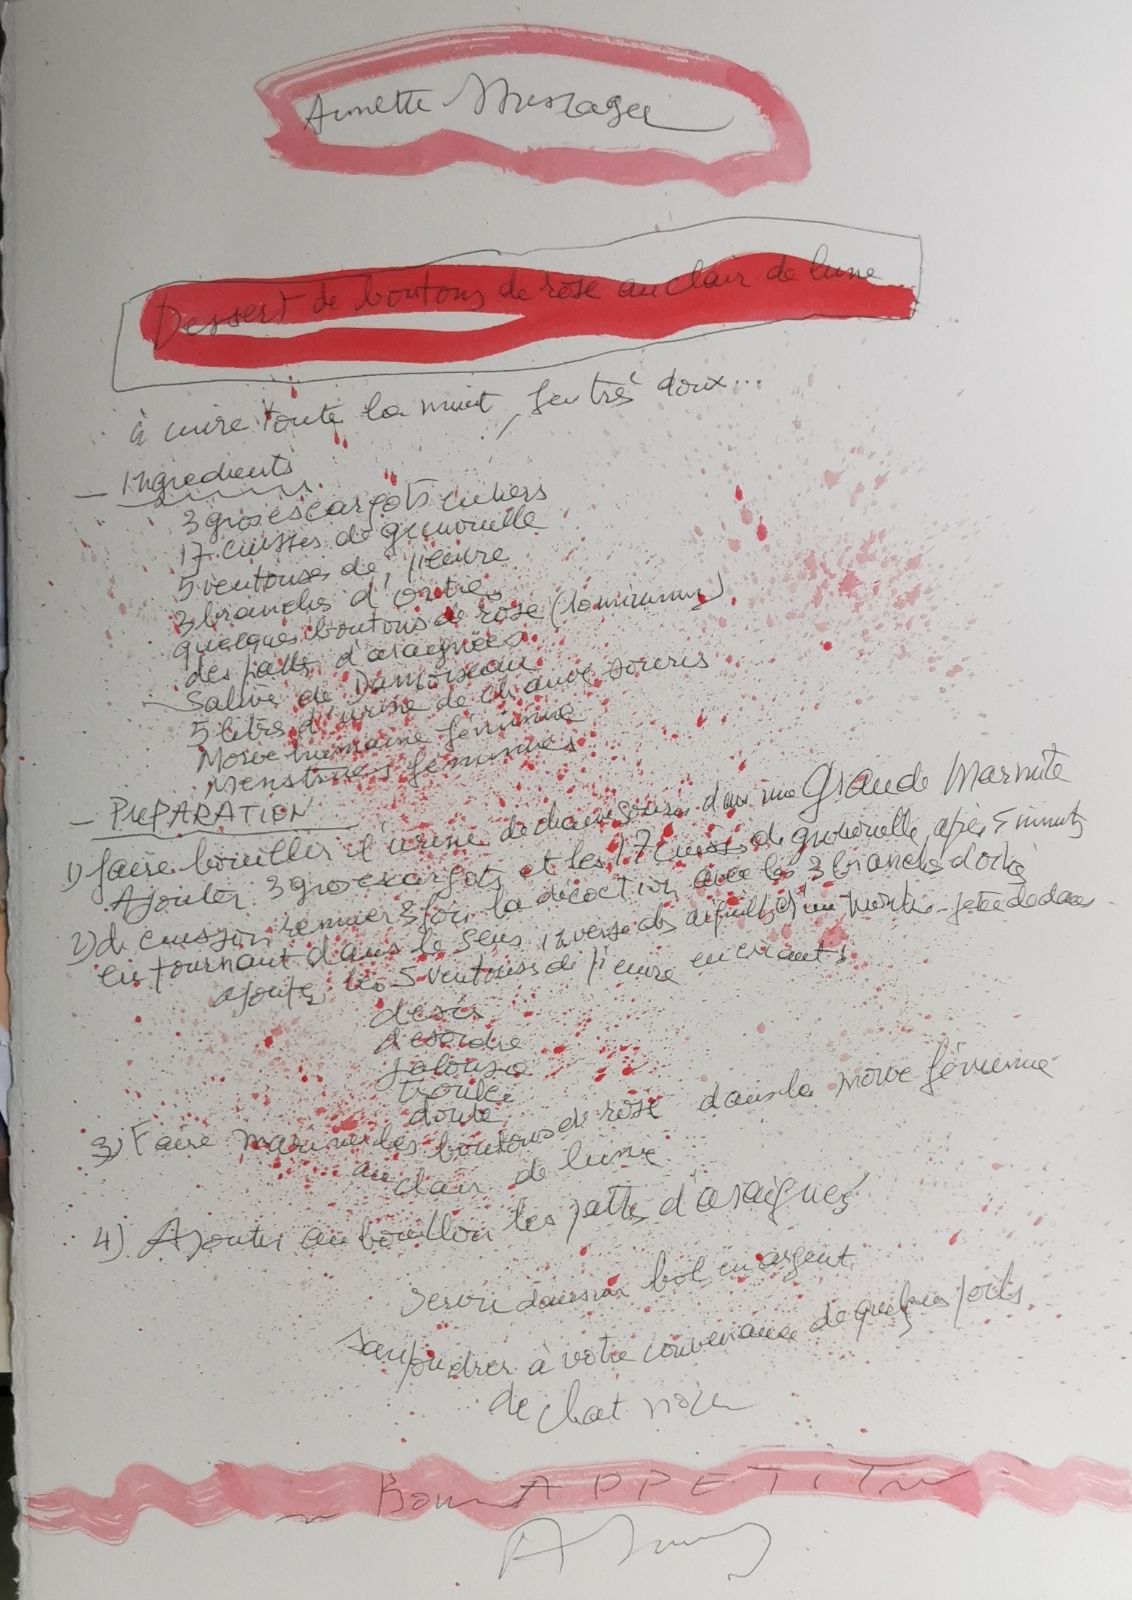 Annette Messager
Dessert de boutons de rose au clair de lune
à cuire toute la nuit, feu très doux...
- Ingredients
3 gros escargots entiers
17 cuisses de grenouille
5 ventouses de pieuvre
3 branches d'ortie
quelques boutons de rose (10 minimum)
des pattes d'araignées
- Salive de Damoiseau
5 litres d'urine de chauve souris
Morve humaine féminine
Menstrues féminines
- PREPARATION
1) faire bouillir l'urine de chauve souris dans une Grande Marmite
Ajouter 3 gros escargots et les 17 cuisses de grenouille, après 5 minutes
2) de cuisson remuer 3 fois la décoction avec les 3 branches d'ortie
en tournant dans le sens inverse des aiguilles d'un montre
ajoutez les 5 ventouses de pieuvre en criant:
désir
désordre
jalousie
trouble
doute
3) Faire mariner les boutons de rose dans la morve féminine
au clair de lune
4) Ajouter au bouillon les pattes d'araignées
servir dans un bol en argent
saupoudrer à votre convenance de quelques poils
de chat noir
~ Bon APPETIT ~